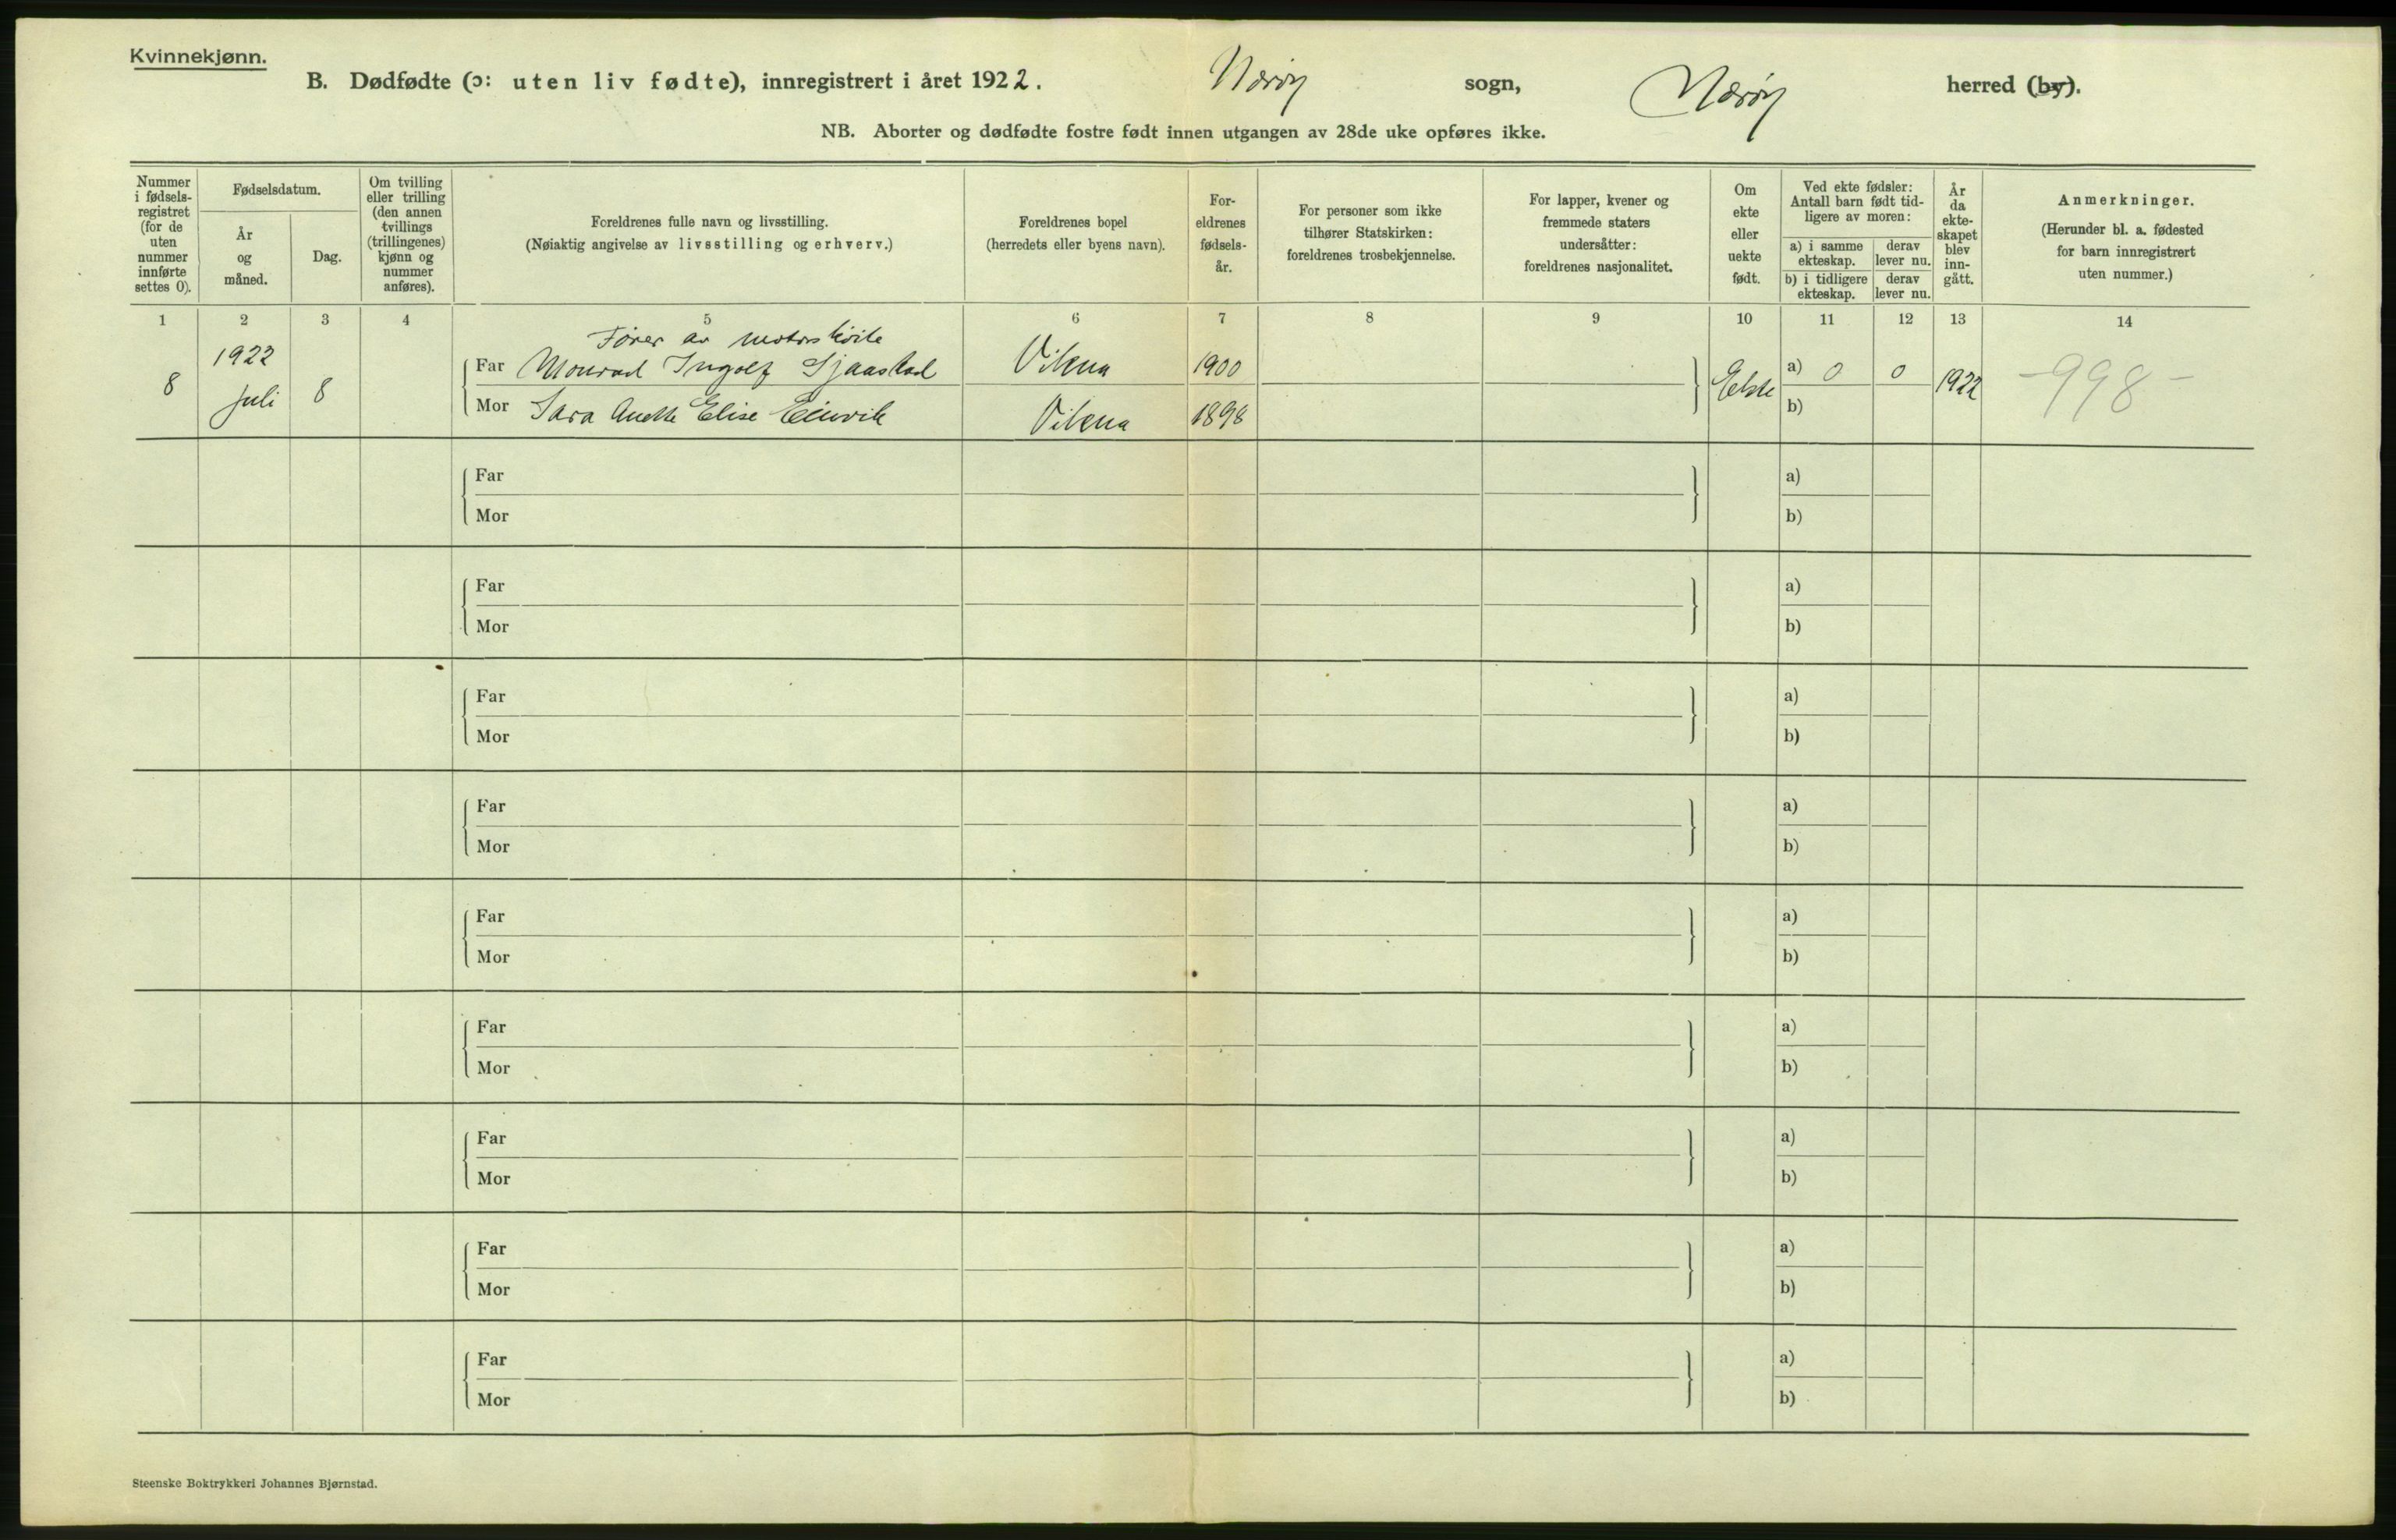 Kvinnekjønn.
B. Dødfødte (ɔ: uten liv fødte), innregistrert i året 1922. Nærøy sogn, Nærøy herred (by).
NB. Aborter og dødfødte fostre født innen utgangen av 28de uke opføres ikke.
Nummer i fødselsregistret (for de uten nummer innførte settes 0).
Fødselsdatum.
År og måned.
Dag.
Om tvilling eller trilling (den annen tvillings (trillingenes) kjønn og nummer anføres).
Foreldrenes fulle navn og livsstilling.
(Nøiaktig angivelse av livsstilling og erhverv.)
Foreldrenes bopel
(herredets eller byens navn).
Foreldrenes fødselsår.
For personer som ikke tilhører Statskirken: foreldrenes trosbekjennelse.
For lapper, kvener og fremmede staters undersåtter: foreldrenes nasjonalitet.
Om ekte eller uekte født.
Ved ekte fødsler: Antall barn født tidligere av moren:
a) i samme ekteskap.
derav lever nu.
b) i tidligere ekteskap.
derav lever nu.
År da ekteskapet blev inngått.
Anmerkninger.
(Herunder bl. a. fødested for barn innregistrert uten nummer.)
1 2 3 4 5 6 7 8 9 10 11 12 13 14
Fører av motorskøite
8 1922 juli 8
Far Monrad Ingolf Sjaastad Vikna 1900
Mor Sara Anette Elise Einvik Vikna 1898
Ekte a) 0 0 1922 -998-
b)
Far a)
Mor b)
Far a)
Mor b)
Far a)
Mor b)
Far a)
Mor b)
Far a)
Mor b)
Far a)
Mor b)
Far a)
Mor b)
Far a)
Mor b)
Far a)
Mor b)
Steenske Boktrykkeri Johannes Bjørnstad.